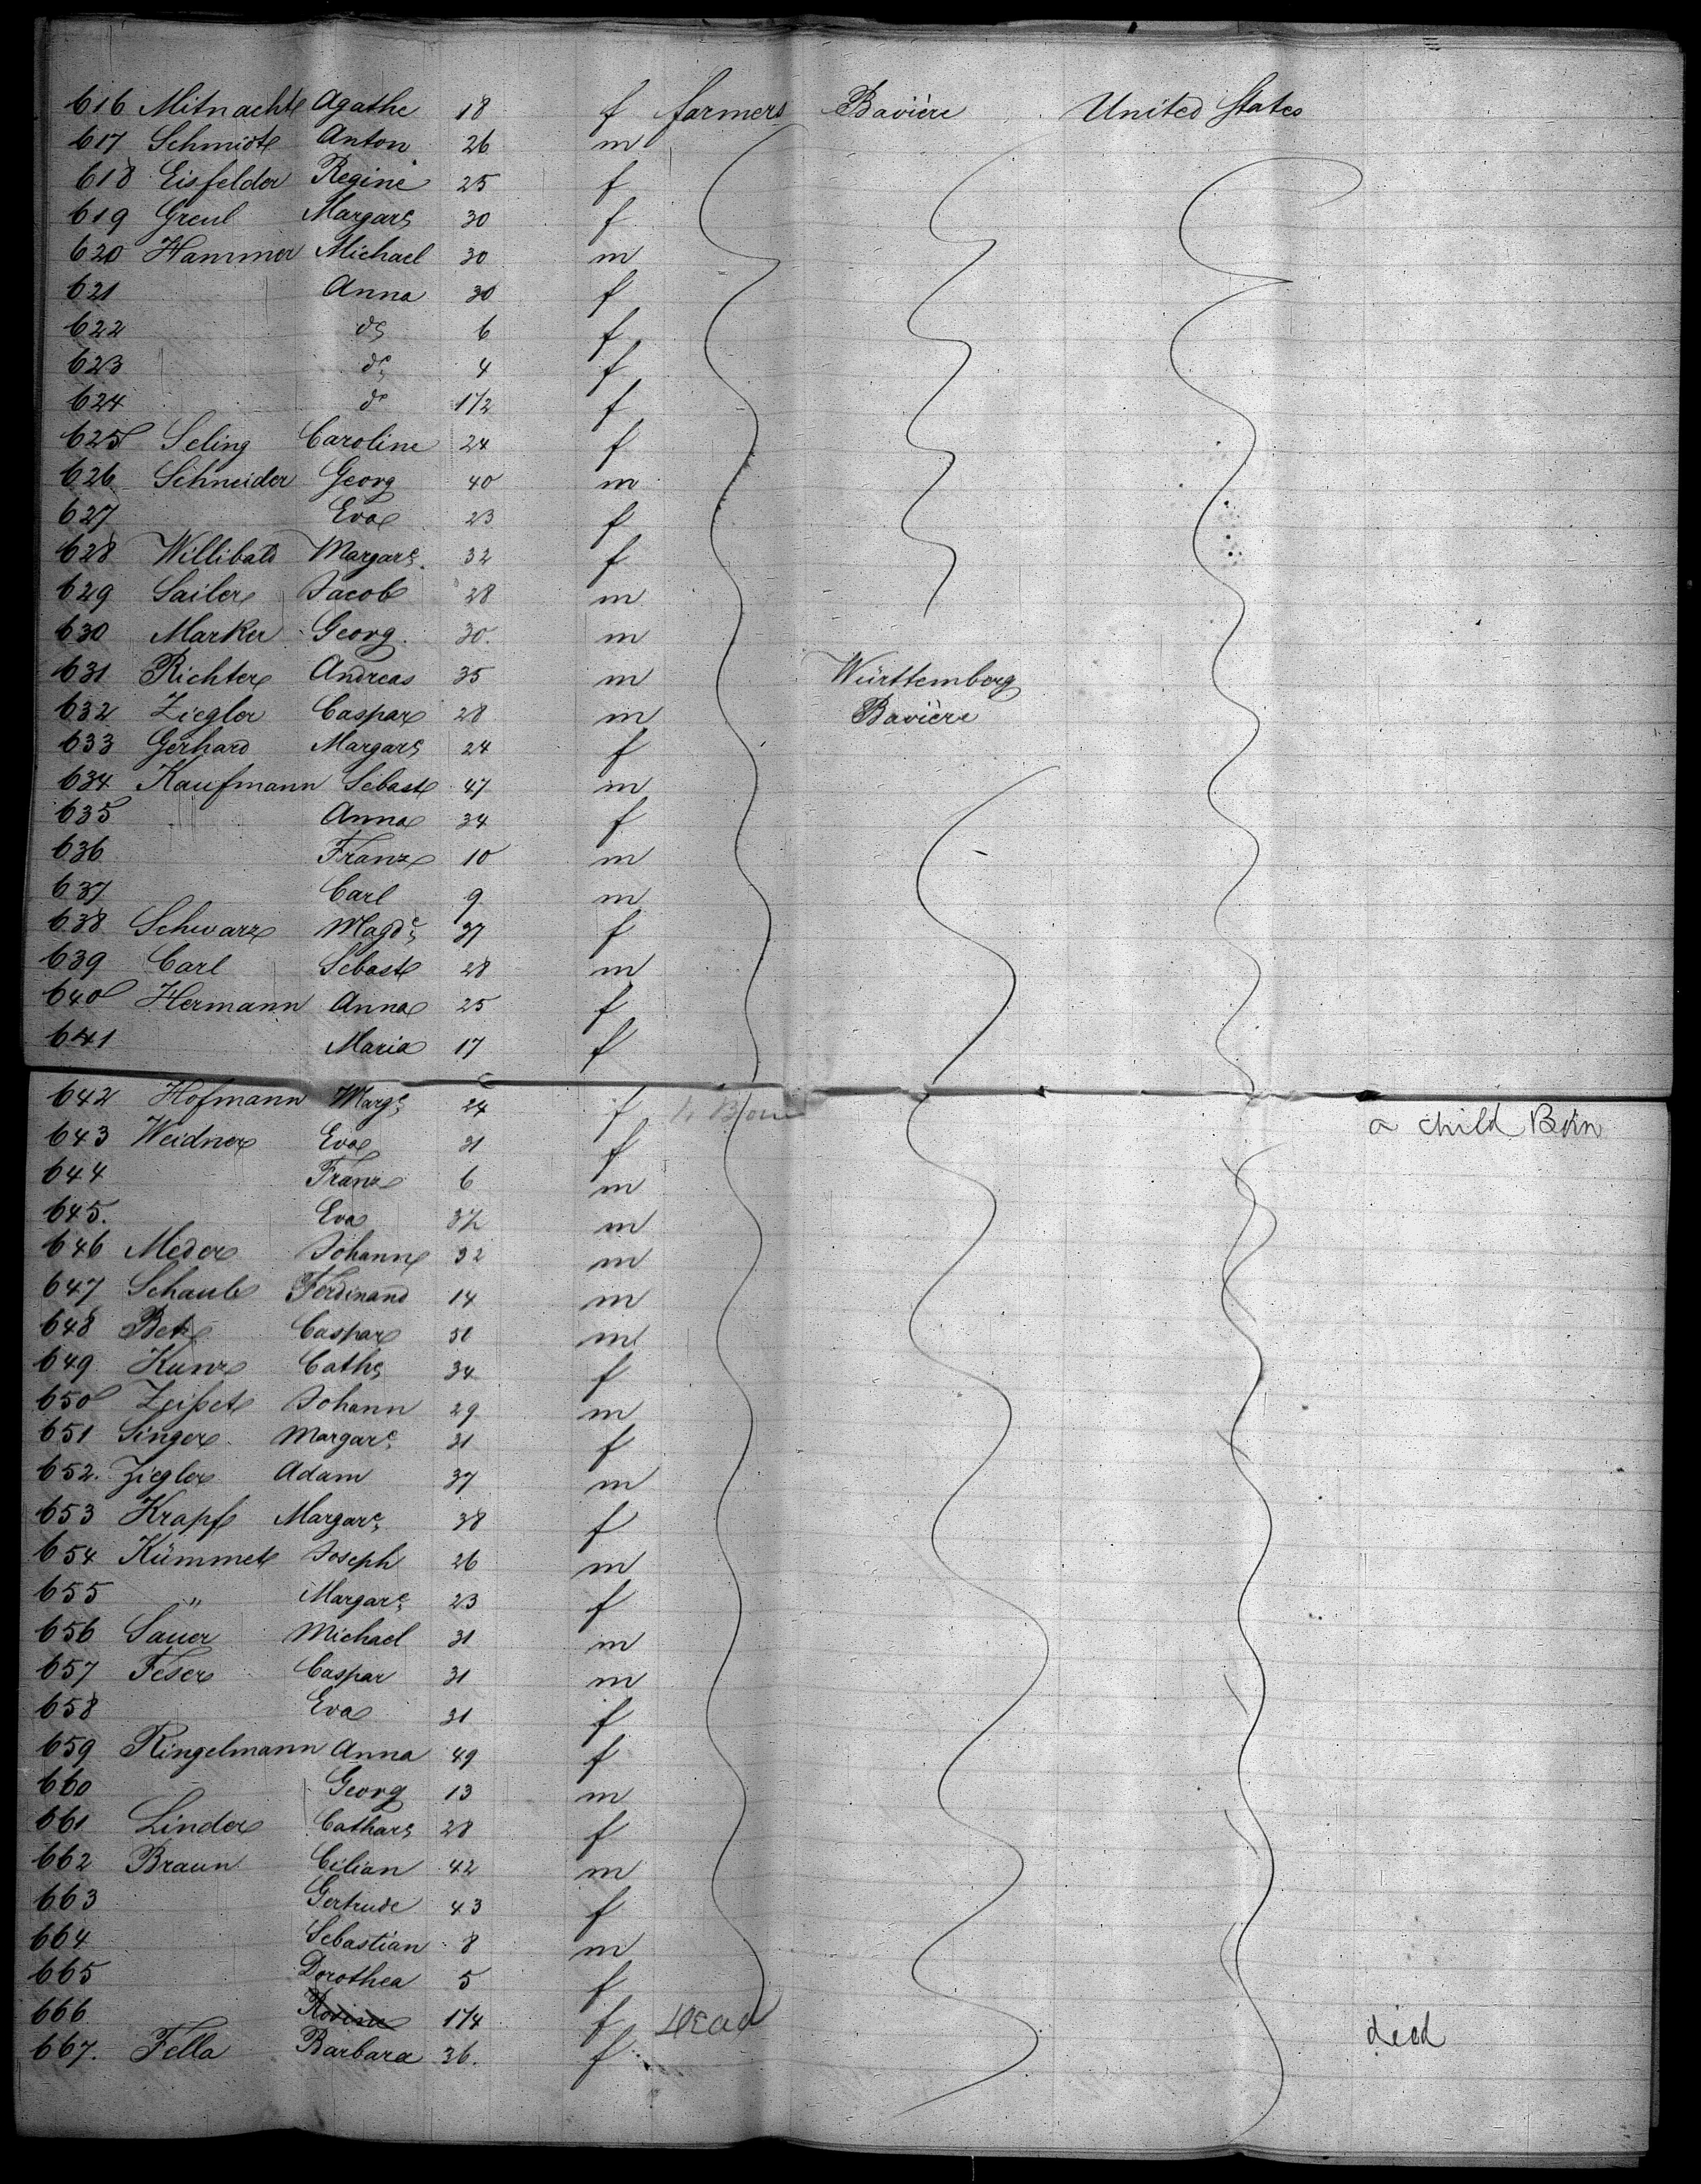 616 Mitnacht Agathe 18 f farmers Bavière United States
617 Schmidt Anton 26 m
618 Eisfelder Regine 25 f
619 Greul Margar 30 f
620 Hammer Michael 30 m
621 Anna 30 f
622 do 6 f
623 do 4 f
624 do 1/2 f
625 Seling Caroline 24 f
626 Schneider Georg 40 m
627 Eva 23 f
628 Willibald Margare 32 f
629 Sailer Jacob 28 m
630 Marker Georg 30. m
631 Richter Andreas 35 m Württemberg
632 Ziegler Caspar 28 m Bavière
633 Gerhard Margar 24 f
634 Kaufmann Sebast 47 m
635 Anna 34 f
636 Franz 10 m
637 Carl 9 m
638 Schwarz Magde 37 f
639 Carl Sebast 28 m
640 Hermann Anna 25 f
641 Maria 17 f
642 Hofmann Marge 24 f a child Born
643 Weidner Eva 31 f
644 Franz 6 m
645. Eva m
646 Meder Johann 32 m
647 Schaub Ferdinand 14 m
648 Betz Caspar 51 m
649 Kunz Cath 34 f
650 Zeißet Johann 29 m
651 Singer Margare 31 f
652. Ziegler Adam 37 m
653 Krapf Margare 38 f
654 Kümmet Joseph 26 m
655 " Margare 23 f
656 Sauer Michael 31 m
657 Feser Caspar 31 m
658 Eva 31 f
659 Ringelmann Anna 49 f
660 Georg 13 m
661 Linder Cathar 28 f
662 Braun Cilian 42 m
663 Gertrude 43 f
664 Sebastian 8 m
665 Dorothea 5 f
666 Rosine 1/4 f Dead died
667. Fella Barbara 36. f